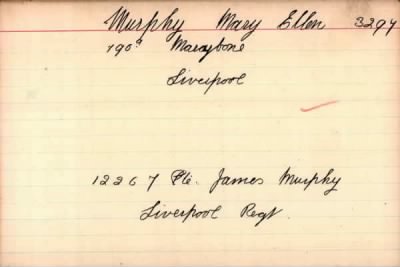 Murphy Mary Ellen 3294
190a Marybone
Liverpool
12267 Pte. James Murphy
Liverpool Regt.